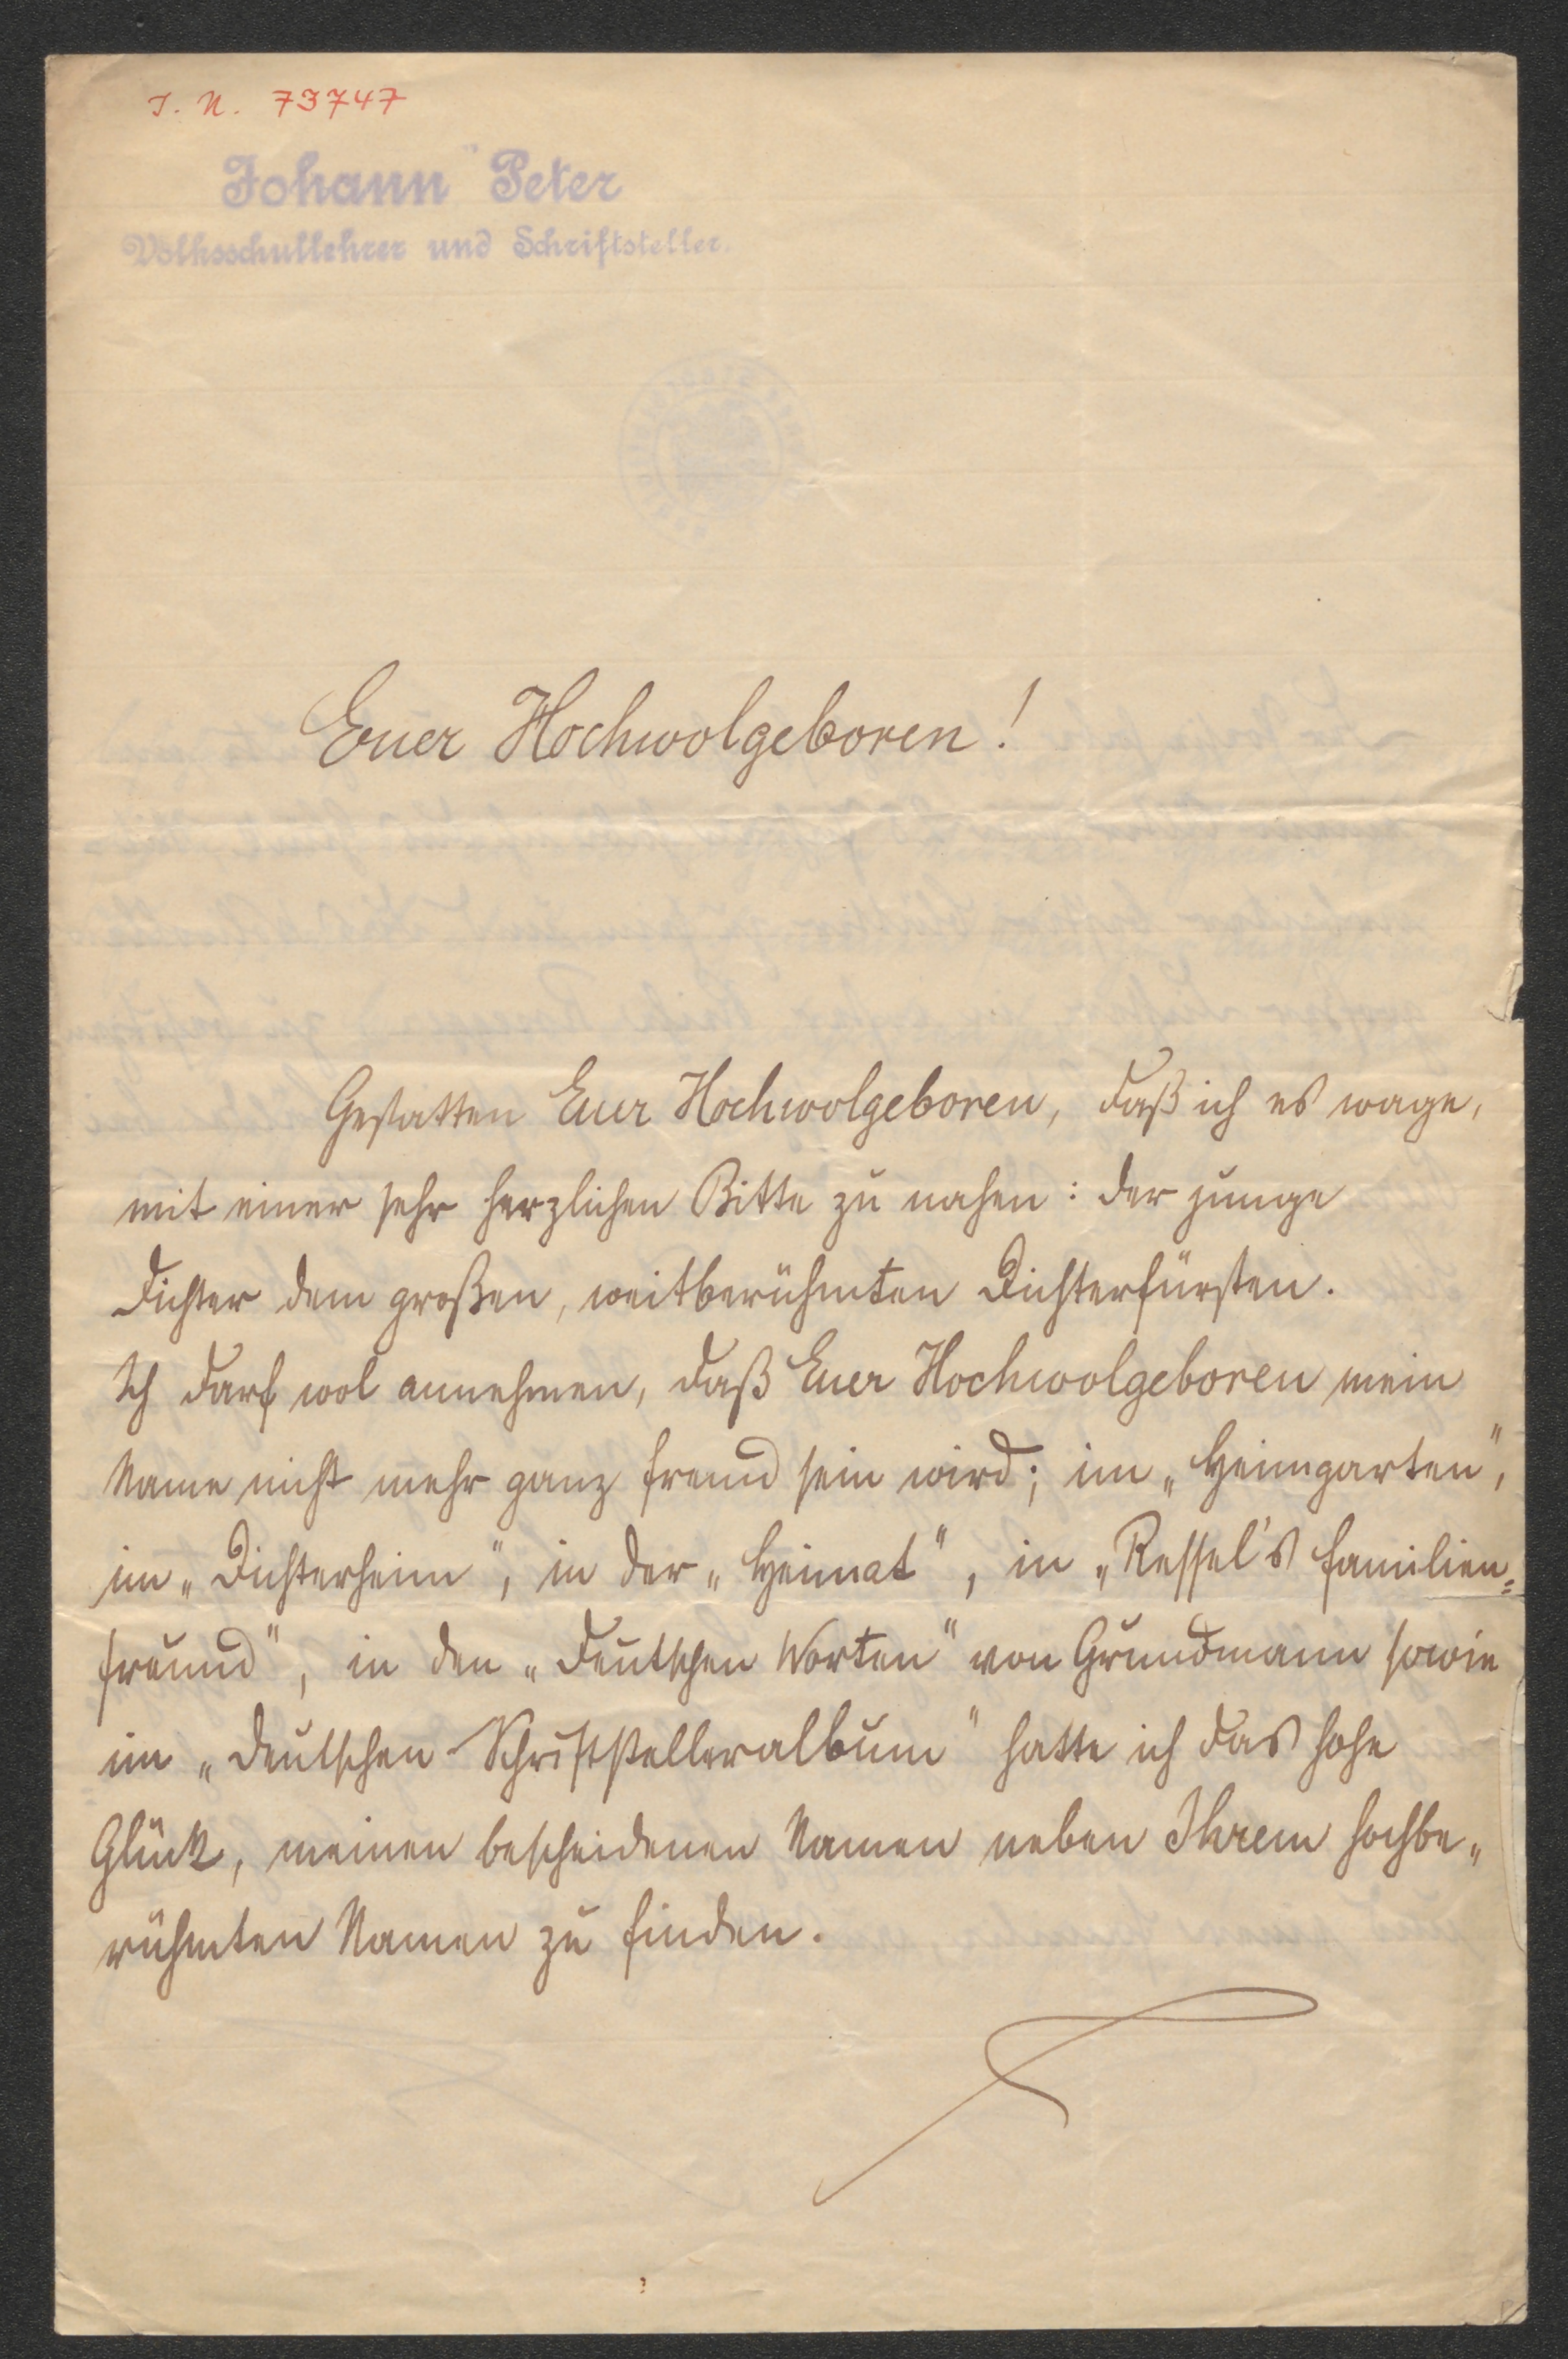 I. N. 73747
Johann Peter
Volksschullehrer und Schriftsteller.
Euer Hochwolgeboren!
Gestatten Euer Hochwolgeboren, daß ich es wage,
mit einer sehr herzlichen Bitte zu nahen: der junge
Dichter dem großen, weitberühmten Dichterfürsten.
Ich darf wol annehmen, daß Euer Hochwolgeboren mein
Name nicht mehr ganz fremd sein wird; im „Heimgarten",
im „Dichterheim", in der „Heimat", in „Ressel's Familien=
freund", in den „Deutschen Worten" von Grundmann sowie
im „Deutschen Schriftstelleralbum" hatte ich das hohe
Glück, meinen bescheidenen Namen neben Ihrem hochbe„
rühmten Namen zu finden.